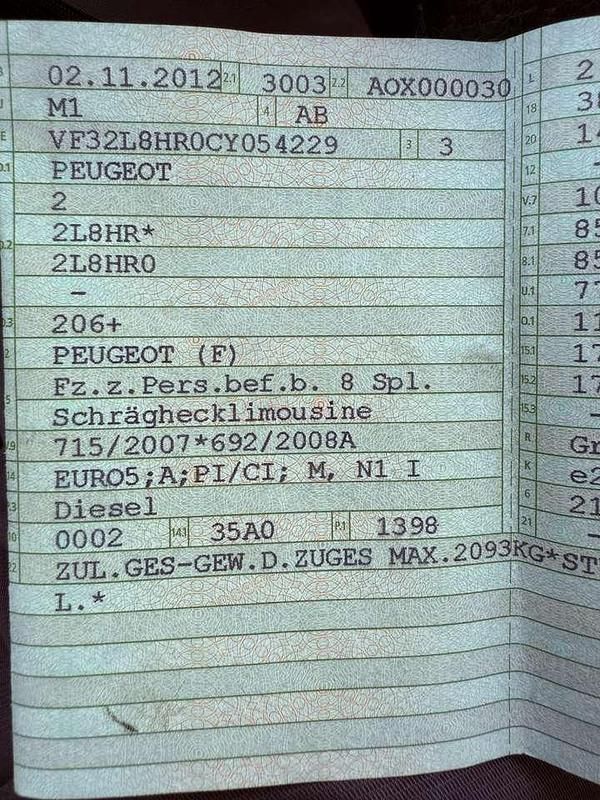 02.11.2012 2.1 3003 2.2 AOX000030 L 2
J M1 4 AB 18
E VF32L8HR0CY054229 3 3 20 14
PEUGEOT 12 -
2 V.7 10
2L8HR* 7.1 85
2L8HR0 8.1 85
- U.1 77
206+ O.1 11
2 PEUGEOT (F) 15.1 17
Fz.z.Pers.bef.b. 8 Spl. 15.2 17
5 Schräghecklimousine 15.3 -
715/2007*692/2008A R Gr
14 EURO5;A;PI/CI; M, N1 I K e2
Diesel 6 21
10 0002 14.1 35A0 P.1 1398 21 -
22 ZUL.GES-GEW.D.ZUGES MAX.2093KG*ST
L.*